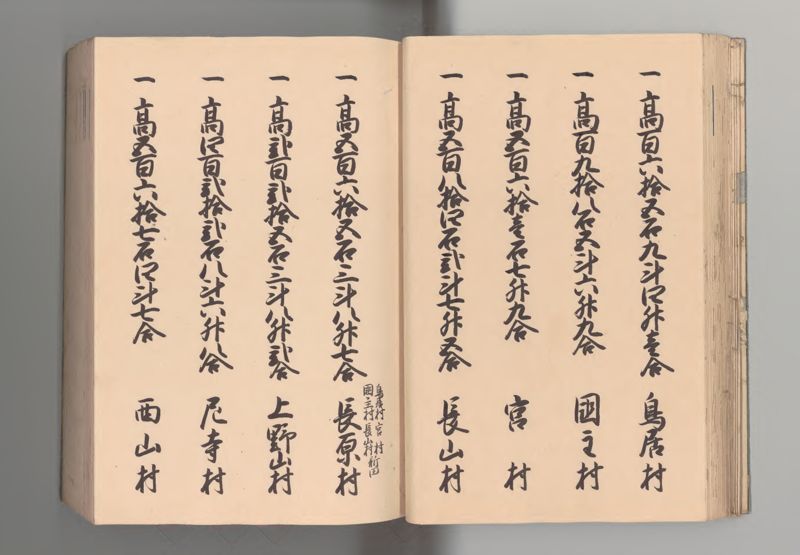 一高百六拾五石九斗四升壱合 鳥居村
一高百九拾八石五斗六升九合 國主村
一高五百六拾壱石七升九合 宮村
一高五百八拾四石弐斗七升五合 長山村
鳥居村宮村新田
國主村長山村
一高五百六拾五石三斗八升七合 長原村
一高弐百弐拾五石三斗八升弐合 上野山村
一高四百弐拾弐石八斗六升八合 尼寺村
一高五百六拾七石四斗七合 西山村